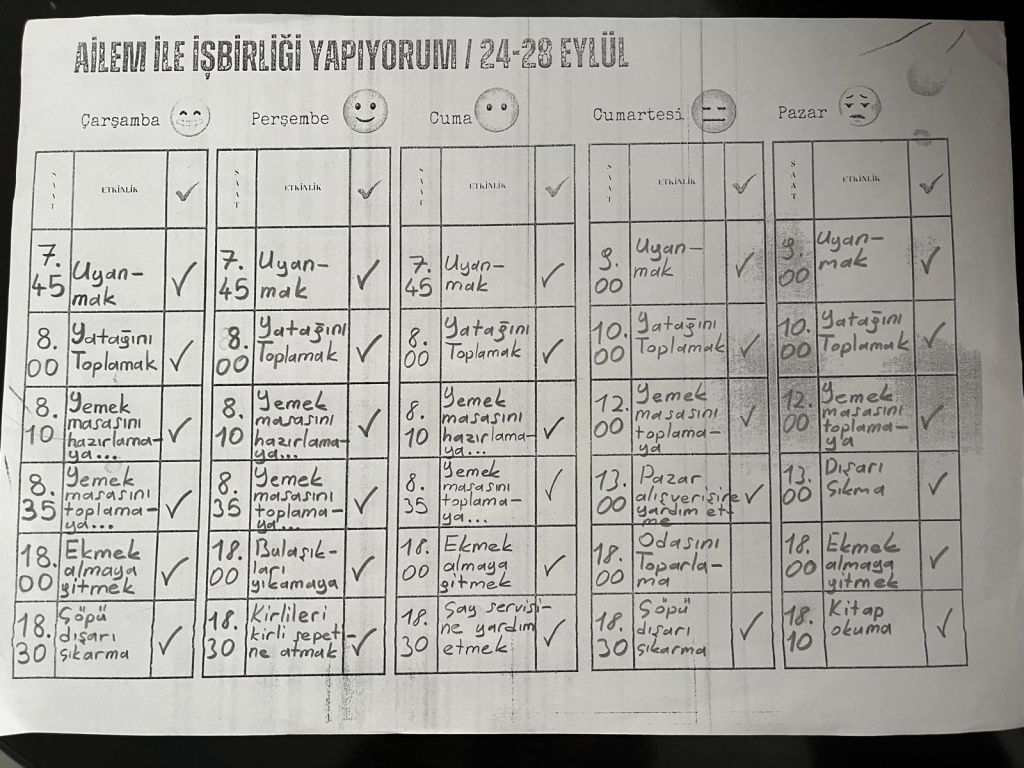 AİLEM İLE İŞBİRLİĞİ YAPIYORUM / 24-28 EYLÜL
Çarşamba
SAAT
ETKİNLİK
7.
45
Uyan-
mak
8.
00
Yatağını
Toplamak
8.
10
Yemek
masasını
hazırlama-
ya...
8.
35
Yemek
masasını
toplama-
ya...
18.
00
Ekmek
almaya
gitmek
18.
30
Çöpü
dışarı
çıkarma
Perşembe
SAAT
ETKİNLİK
7.
45
Uyan-
mak
8.
00
Yatağını
Toplamak
8.
10
Yemek
masasını
hazırlama-
ya...
8.
35
Yemek
masasını
toplama-
ya...
18.
00
Bulaşık-
ları
yıkamaya
18.
30
Kirlileri
kirli sepeti-
ne atmak
Cuma
SAAT
ETKİNLİK
7.
45
Uyan-
mak
8.
00
Yatağını
Toplamak
8.
10
Yemek
masasını
hazırlama-
ya...
8.
35
Yemek
masasını
toplama-
ya...
18.
00
Ekmek
almaya
gitmek
18.
30
Çay servisi-
ne yardım
etmek
Cumartesi
SAAT
ETKİNLİK
9.
00
Uyan-
mak
10.
00
Yatağını
Toplamak
12.
00
Yemek
masasını
toplama-
ya
13.
00
Pazar
alışverişine
yardım et-
me
18.
00
Odasını
Toparla-
ma
18.
30
Çöpü
dışarı
çıkarma
Pazar
SAAT
ETKİNLİK
9.
00
Uyan-
mak
10.
00
Yatağını
Toplamak
12.
00
Yemek
masasını
toplama-
ya
13.
00
Dışarı
Çıkma
18.
00
Ekmek
almaya
gitmek
18.
10
Kitap
okuma